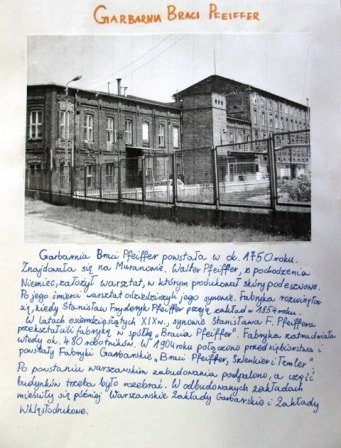 GARBARNIA BRACI PFEIFFER
Garbarnia Braci Pfeiffer powstała w ok. 1750 roku.
Znajdowała się na Muranowie. Walter Pfeiffer, z pochodzenia
Niemiec, założył warsztat, w którym produkował skóry podeszwowe.
Po jego śmierci warsztat odziedziczyli jego synowie. Fabryka rozwinęła
się, kiedy Stanisław Fryderyk Pfeiffer przejął zakład w 1854 roku.
W latach osiemdziesiątych XIX w., synowie Stanisława F. Pfeiffera
przekształcili fabrykę w spółkę „Bracia Pfeiffer". Fabryka zatrudniała
wtedy ok. 480 robotników. W 1904 roku połączono przedsiębiorstwa i
powstały Fabryki Garbarskie „Braci Pfeiffer, Szlenkier i Temler"
Po powstaniu warszawskim zabudowania podpalono, a część
budynków trzeba było rozebrać. W odbudowanych zakładach
mieściły się później Warszawskie Zakłady Garbarskie i Zakłady
Włókiennicze.